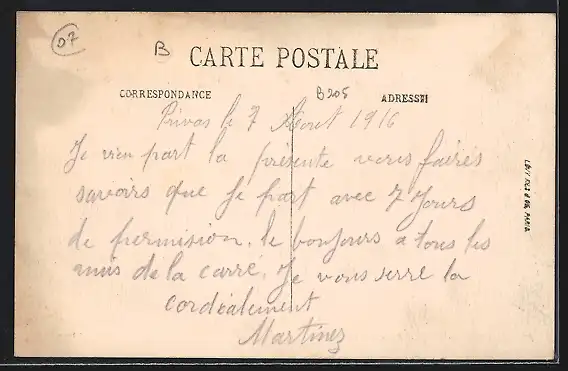 07
B
CARTE POSTALE
CORRESPONDANCE
B208
ADRESSE
Privas le 7 Aout 1916
Je vien part la présente vous faires
savoirs que je part avec 7 Jours
de permision, le bonjours a tous les
amis de la carré, Je vous serre la
cordialement
Martinez
LÉVY FILS & CIE PARIS